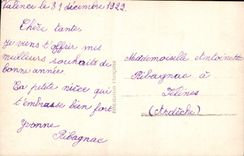 Valence le 31 décembre 1929.
Chère tante
Je viens t'offrir mes
meilleurs souhaits de
bonne année.
Ta petite nièce qui
t'embrasse bien fort
Yvonne
Ribagnac
Mademoiselle Antoinette
Ribagnac à
Félines
(Ardèche)